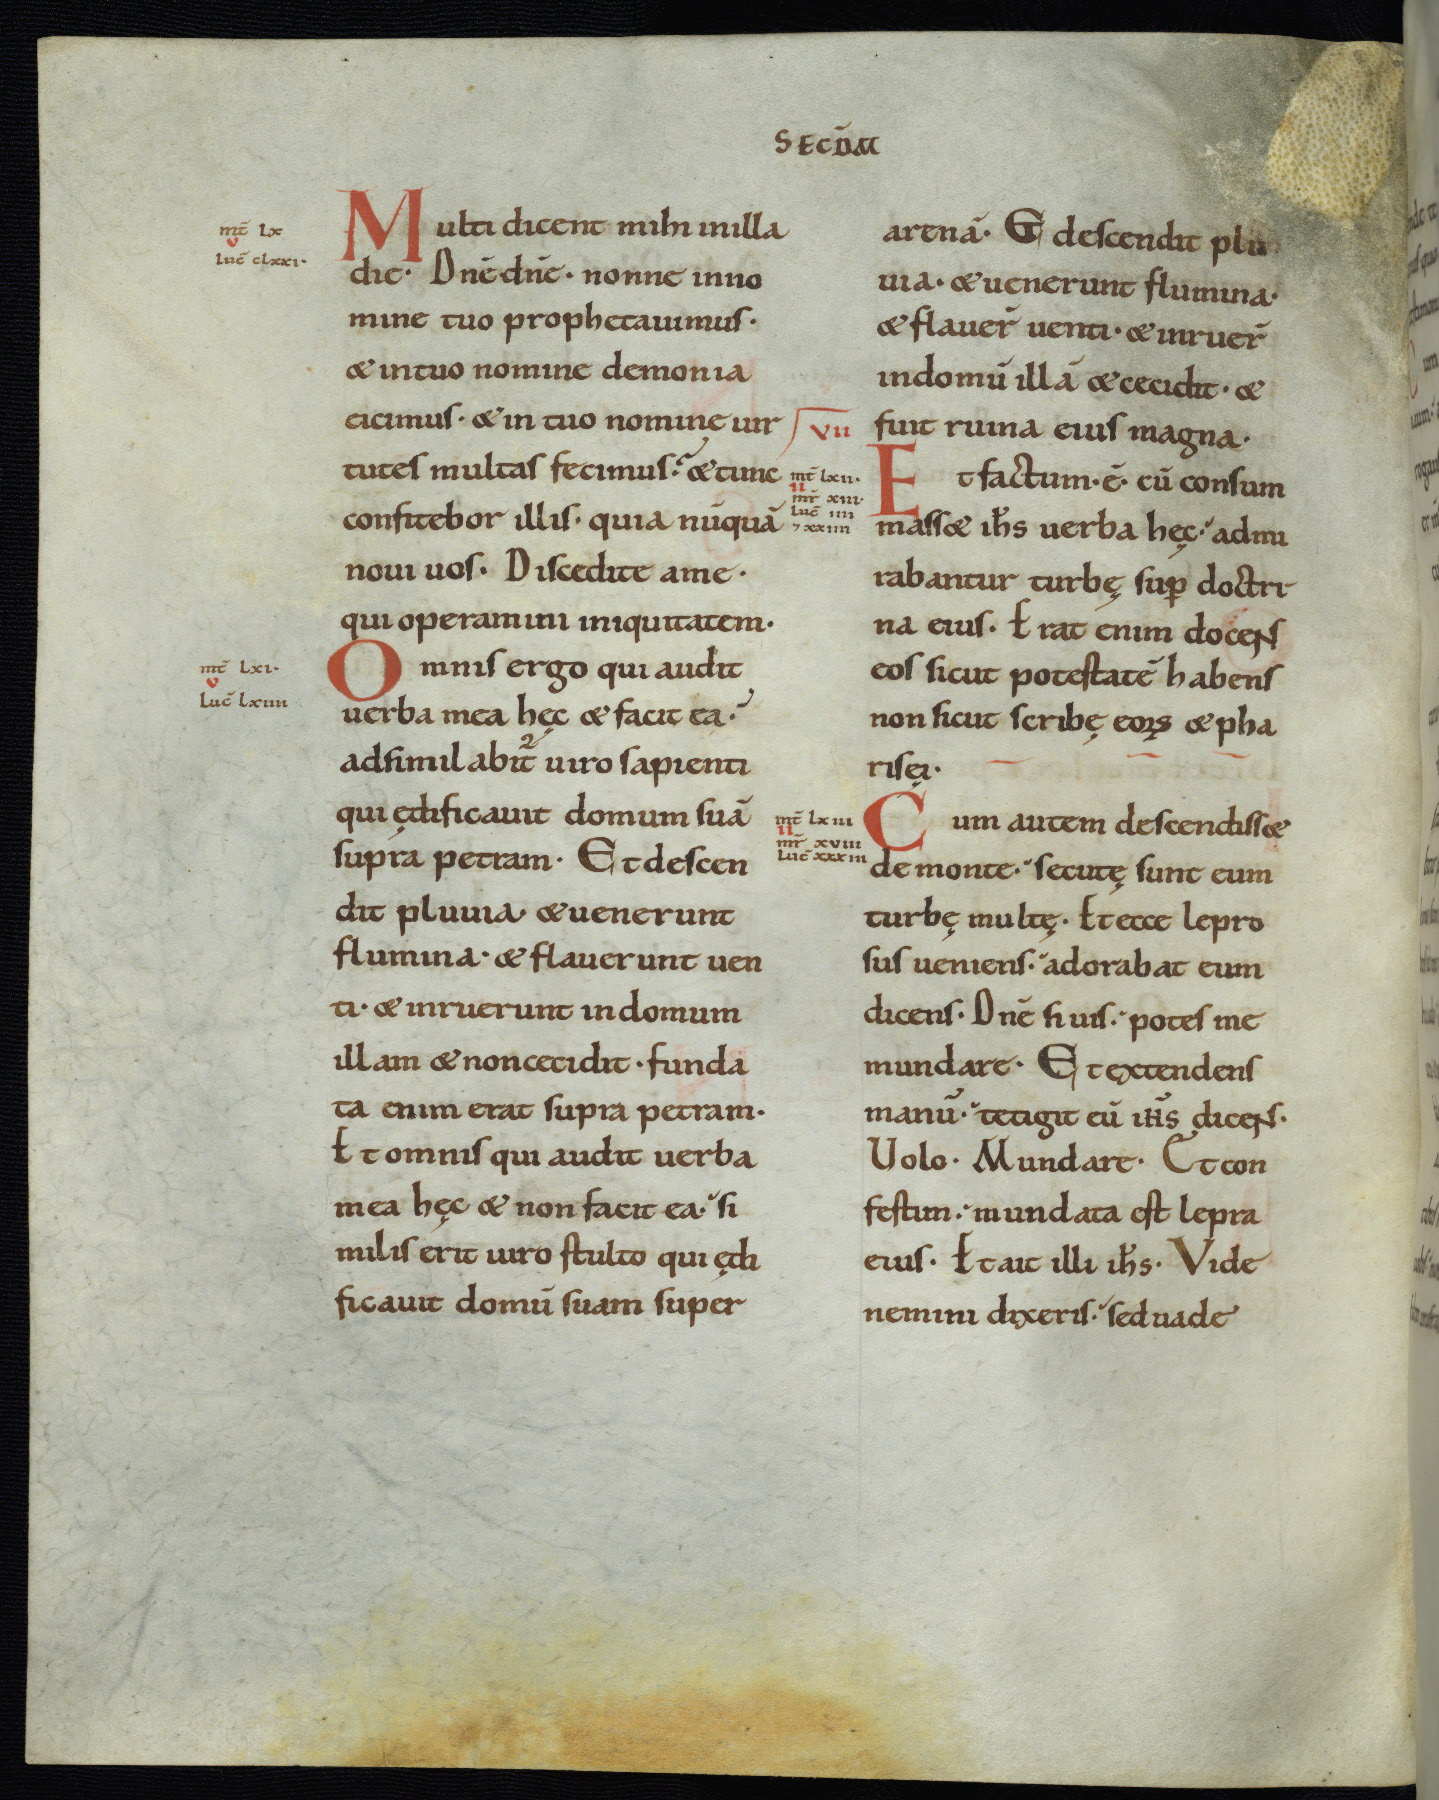 SECD̄M
mt̄ lx
v
luc̄ clxxi·
Multi dicent mihi in illa
die· Dnē dnē· nonne in no
mine tuo prophetauimus·
& in tuo nomine demonia
eicimus· & in tuo nomine uir
tutes multas fecimus· & tunc
confitebor illis· quia nūquā
noui uos· Discedite a me·
qui operamini iniquitatem·
mt̄ lxi·
v
luc̄ lxiiii
Omnis ergo qui audit
uerba mea hęc & facit ea·
adsimilabit̄ uiro sapienti
qui ędificauit domum suā
supra petram· Et descen
dit pluuia· & uenerunt
flumina· & flauerunt uen
ti· & inruerunt in domum
illam & non cecidit· funda
ta enim erat supra petram·
Et omnis qui audit uerba
mea hęc & non facit ea· si
milis erit uiro stulto qui ędi
ficauit domū suam super
arenā· Et descendit plu
uia· & uenerunt flumina·
& flauer̄ uenti· & inruer̄
in domū illā & cecidit· &
fuit ruina eius magna·
vii
mt̄ lxii·
ii
mr̄ xiii·
luc̄ iiii
⁊ xxiiii
Et factum·ē· cū consum
mass& ih̄s uerba hęc· admi
rabantur turbę sup̄ doctri
na eius· Erat enim docens
eos sicut potestatē habens
non sicut scribę eoꝝ & pha
risęi·
mt̄ lxiii
ii
mr̄ xviii
luc̄ xxxiii
Cum autem descendiss&
de monte· secutę sunt eum
turbę multę· Et ecce lepro
sus ueniens· adorabat eum
dicens· Dnē si uis· potes me
mundare· Et extendens
manū· tetigit eū ih̄s dicens·
Uolo· Mundare· Et con
festim· mundata est lepra
eius· Et ait illi ih̄s· Vide
nemini dixeris· sed uade